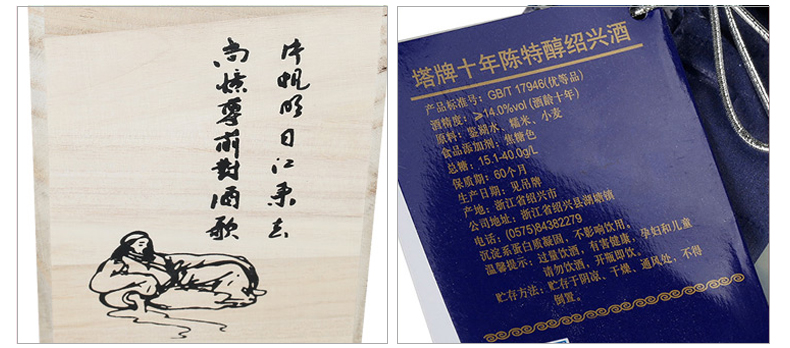 片帆明日江东去
尚憶尊前對酒歌
塔牌十年陈特醇绍兴酒
产品标准号：GB/T 17946(优等品)
酒精度：≥14.0%vol (酒龄十年)
原料：鉴湖水、糯米、小麦
食品添加剂：焦糖色
总糖：15.1-40.0g/L
保质期：60个月
生产日期：见吊牌
产地：浙江省绍兴市
公司地址：浙江省绍兴县湖塘镇
电话：(0575)84382279
沉淀系蛋白质凝固，不影响饮用。
温馨提示：过量饮酒，有害健康，孕妇和儿童
请勿饮酒，开瓶即饮。
贮存方法：贮存于阴凉、干燥、通风处，不得
倒置。